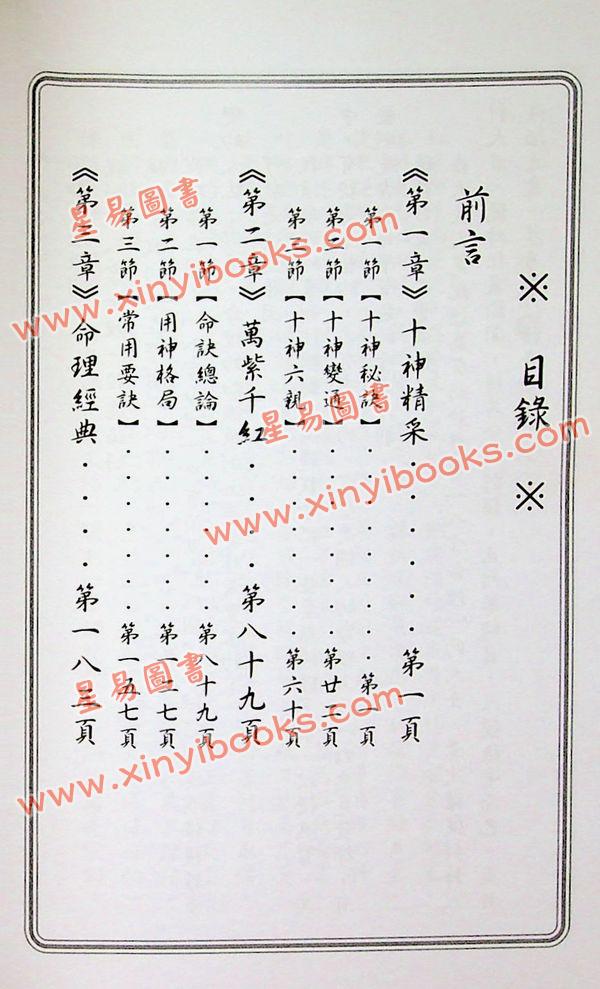 ※ 目錄 ※
前言
《第一章》十神精采．．．．．．第一頁
第一節【十神秘訣】．．．．．．．．第一頁
第二節【十神變通】．．．．．．．第廿二頁
第三節【十神六親】．．．．．．．第六十頁
《第二章》萬紫千紅．．．．第八十九頁
第一節【命訣總論】．．．．．．第八十九頁
第二節【用神格局】．．．．．．第一二七頁
第三節【常用要訣】．．．．．．第一五七頁
《第三章》命理經典．．．．第一八三頁
星易圖書
www.xinyibooks.com
星易圖書
www.xinyibooks.com
星易圖書
www.xinyibooks.com